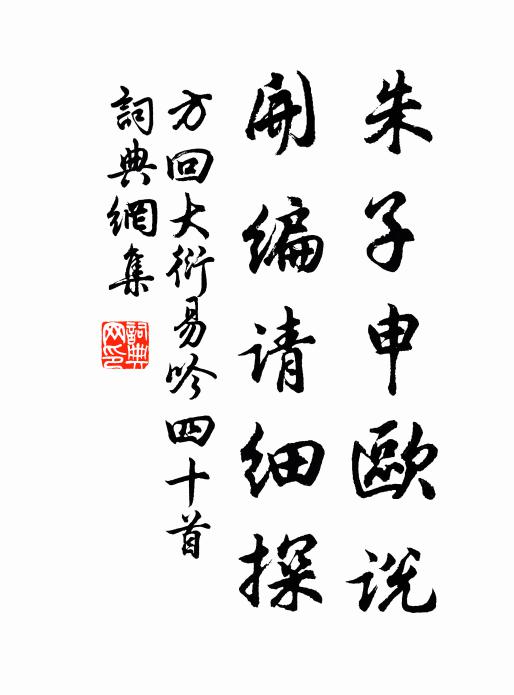 朱子申歐说
開编请细探
方回大衍易吟四十首
詞典網集
詞典网印